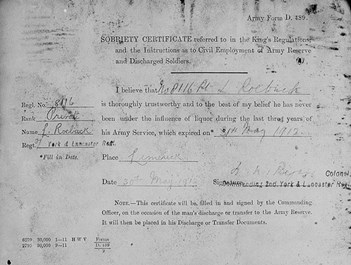 Army Form D. 489.
SOBRIETY CERTIFICATE referred to in the King's Regulations
and the Instructions as to Civil Employment of Army Reserve
and Discharged Soldiers.
I believe that No 8116 Pte L Roebuck
Regl. No.
is thoroughly trustworthy and to the best of my belief he has never
Rank Private
been under the influence of liquor during the last three years of
Name L. Roebuck
his Army Service, which expired on May 1912
Regt. York & Lancaster Regt
*Fill in Date.
Place Limerick
Date May 1912
Signature
Colonel
Commanding 2nd. York & Lancaster Regt
NOTE.—This certificate will be filled in and signed by the Commanding
Officer, on the occasion of the man's discharge or transfer to the Army Reserve.
It will then be placed in his Discharge or Transfer Documents.
H W V
Forms